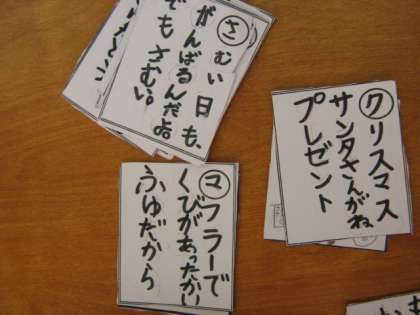 さむい日も、
がんばるんだよ
でもさむい。
クリスマス
サンタさんがね
プレゼント
マフラーで
くびがあったかい
ふゆだから